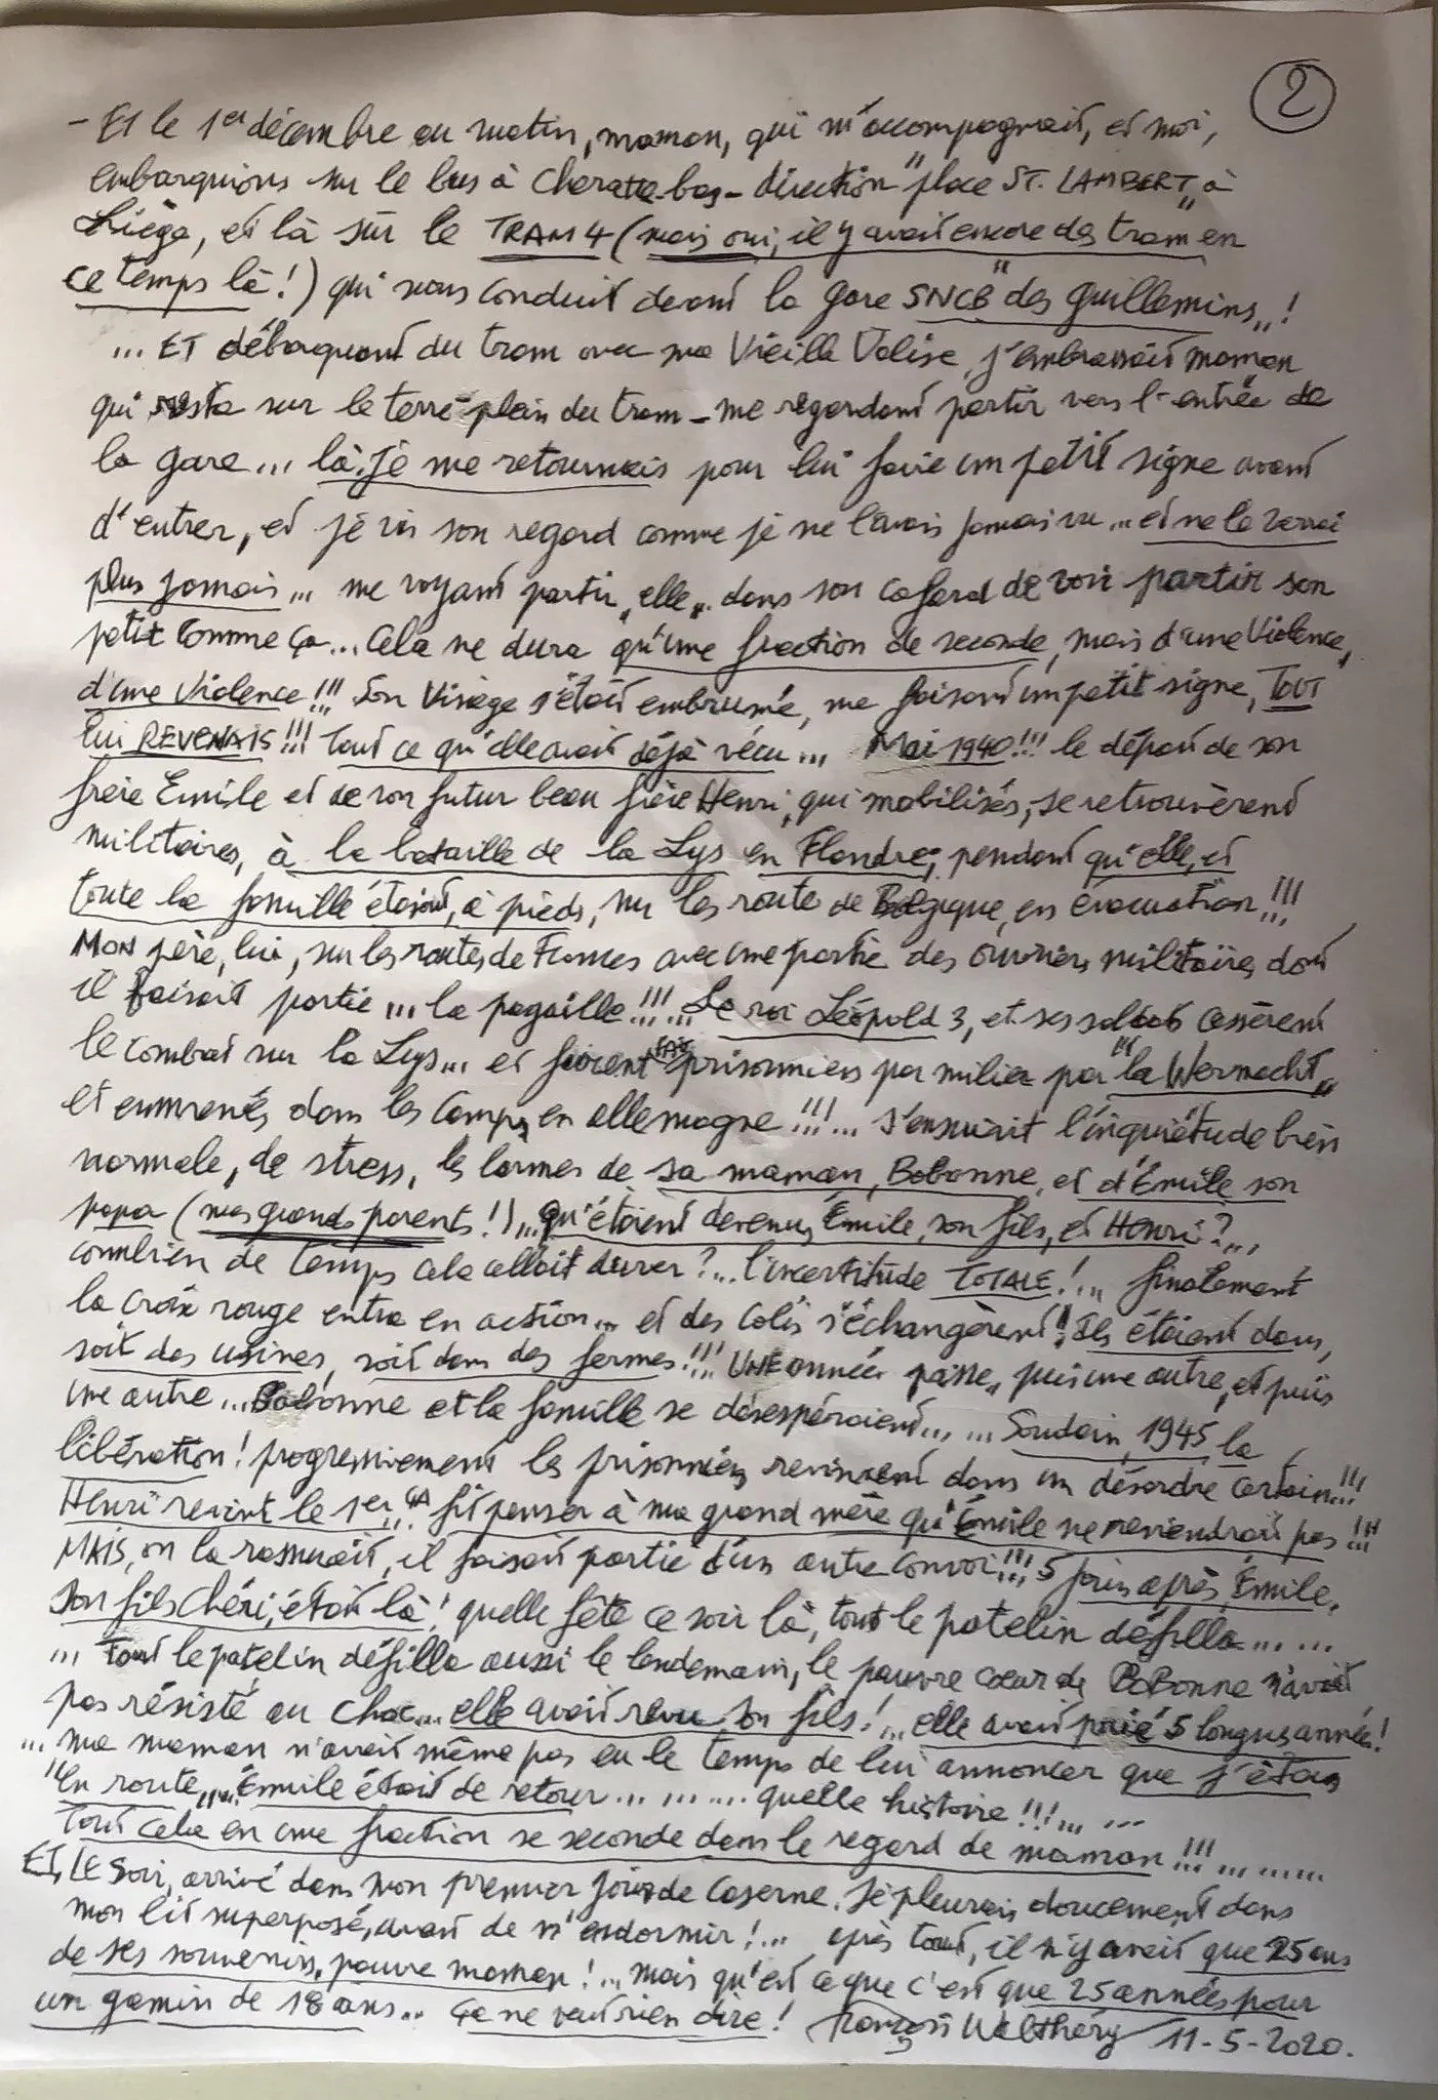 2
- Et le 1er décembre au matin, maman, qui m'accompagnait, et moi,
embarquions sur le bus à Cheratte-bas - direction "place ST. LAMBERT" à
Liège, et là sur le TRAM 4 (mais oui, il y avait encore des tram en
ce temps là !) qui nous conduit devant la gare SNCB "des guillemins" !
... ET débarquant du tram avec ma Vieille Valise, j'embrassais maman
qui resta sur le terre-plein du tram - me regardant partir vers l'entrée de
la gare... là, je me retournais pour lui faire un petit signe avant
d'entrer, et je vis son regard comme je ne l'avais jamais vu... et ne le verrai
plus jamais... me voyant partir, "elle", dans son cafard de voir partir son
petit comme ça... Cela ne dura qu'une fraction de seconde, mais d'une Violence,
d'une Violence !!! Son Visage s'était embrumé, me faisant un petit signe, TOUT
lui REVENAIS !!! Tout ce qu'elle avait déjà vécu... Mai 1940 !!! le départ de son
frère Emile et de son futur beau frère Henri, qui mobilisés, se retrouvèrent
militaires, à la bataille de la Lys en Flandre, pendant qu'elle, et
toute la famille étaient, à pieds, sur les route de Belgique, en évacuation !!!
MON père, lui, sur les routes de Furnes avec une partie des ouvriers militaires dont
il faisait partie... la pagaille !!!... Le roi Léopold 3, et ses soldats cessèrent
le combat sur la Lys... et furent FAIT prisonniers par milier par "la Wermacht"
et emmenés dans les Camps, en allemagne !!!... s'ensuivit l'inquiétude bien
normale, de stress, les larmes de sa maman, Bobonne, et d'Émile son
papa (mes grands parents !)... Qu'étaient devenus Émile, son fils, et Henri ?...
combien de temps cela allait durer ?... l'incertitude TOTALE !... finalement
la croix rouge entra en action... et des colis s'échangèrent ! Ils étaient dans,
soit des usines, soit dans des fermes !!! UNE année passe, puis une autre, et puis
une autre... Bobonne et la famille se désespéraient... ... Soudain, 1945, la
libération ! progressivement les prisonniers revinrent dans un désordre certain !!!
Henri revint le 1er... ÇA fit penser à ma grand mère qu'Émile ne reviendrait pas !!!
MAIS, on la rassurait, il faisait partie d'un autre convoi !!! 5 jours après, Émile,
son fils chéri, était là ! quelle fête ce soir là, tout le patelin défila... ...
... Tout le patelin défilla aussi le lendemain, le pauvre cœur de BoBonne n'avait
pas résisté au choc... elle avait revu son fils !... elle avait prié 5 longues années !
... ma maman n'avait même pas eu le temps de lui annoncer que j'étais
"en route"... Émile était de retour... ... ... quelle histoire !!!... ...
Tout cela en une fraction se seconde dans le regard de maman !!! ... ...
ET, LE Soir, arrivé dans mon premier jour de Caserne. je pleurais doucement dans
mon lit superposé, avant de m'endormir !... après tout, il n'y avait que 25 ans
de ses souvenirs, pauvre maman !... mais qu'est ce que c'est que 25 années pour
un gamin de 18 ans.. ça ne veut rien dire ! François Walthéry 11-5-2020.